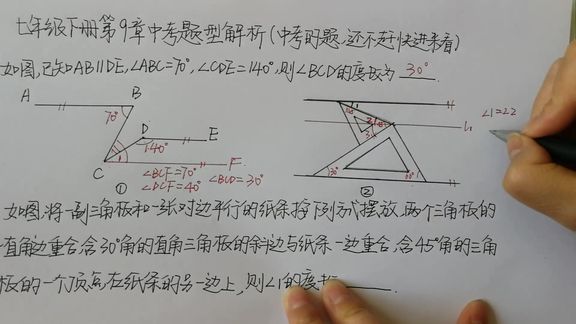 七年级下册第9章中考题型解析(中考的题,还不赶快进来看)
如图,已知AB∥DE,∠ABC=70°,∠CDE=140°,则∠BCD的度数为 30°.
A B
70°
D E
140°
C F
∠BCF=70°
∠DCF=40° ∠BCD=30°
①
∠1=∠2
30°
②
如图,将一副三角板和一张对边平行的纸条按下列方式摆放,两个三角板的
一直角边重合,含30°角的直角三角板的斜边与纸条一边重合,含45°角的三角
板的一个顶点在纸条的另一边上,则∠1的度